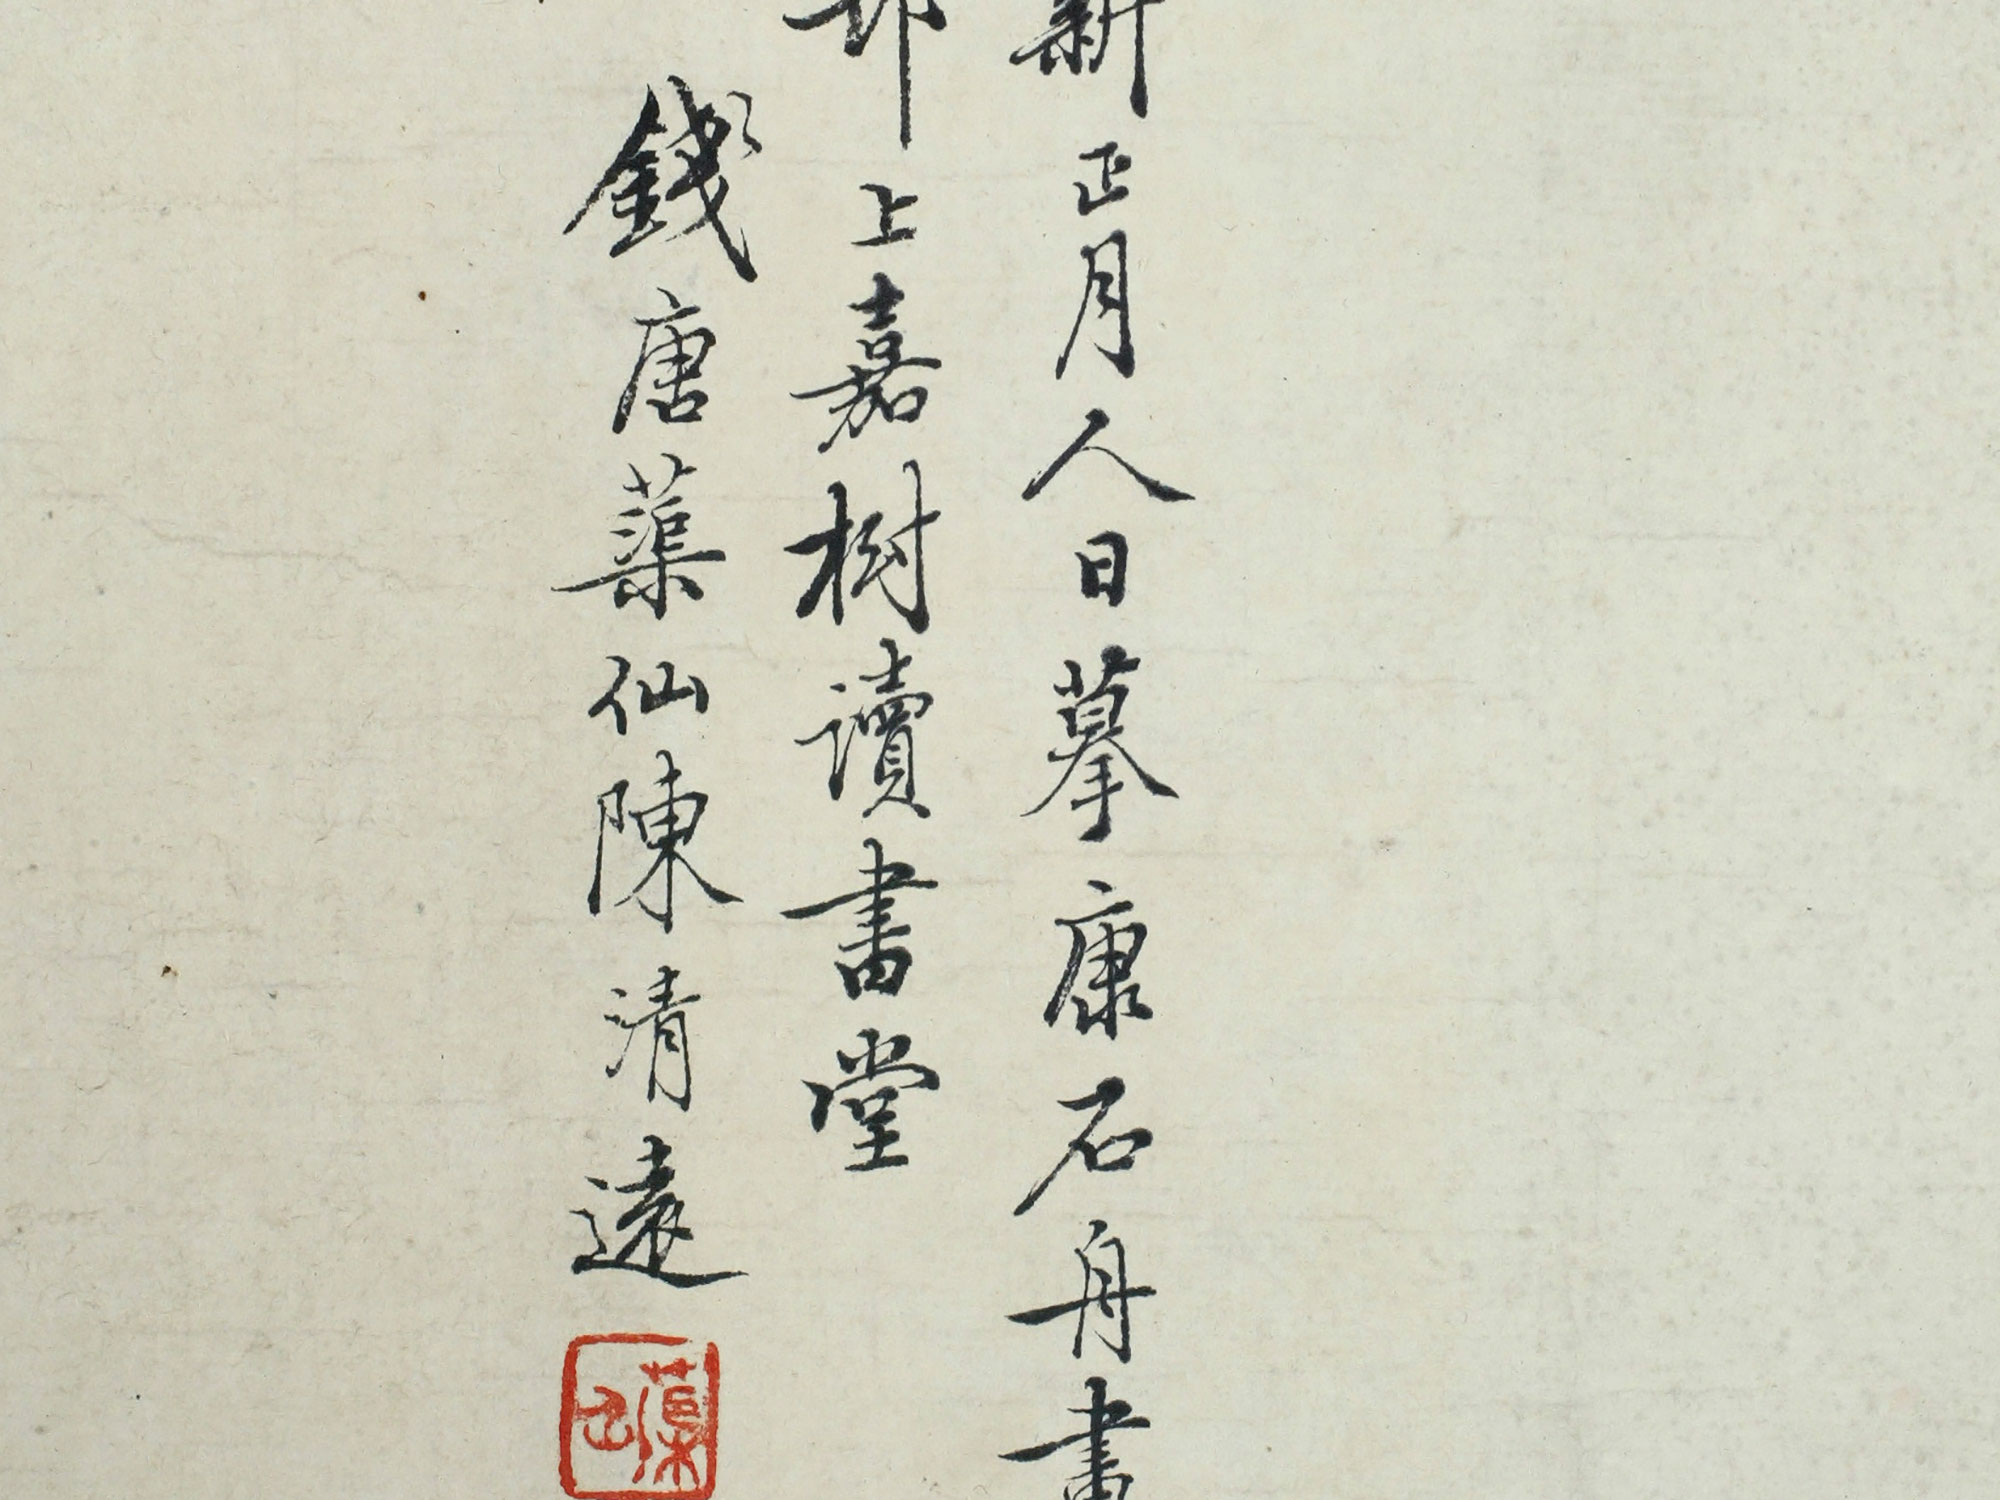 新正月人日摹康石舟畫
上嘉樹讀書堂
錢唐蕖仙陳清遠
蕖仙